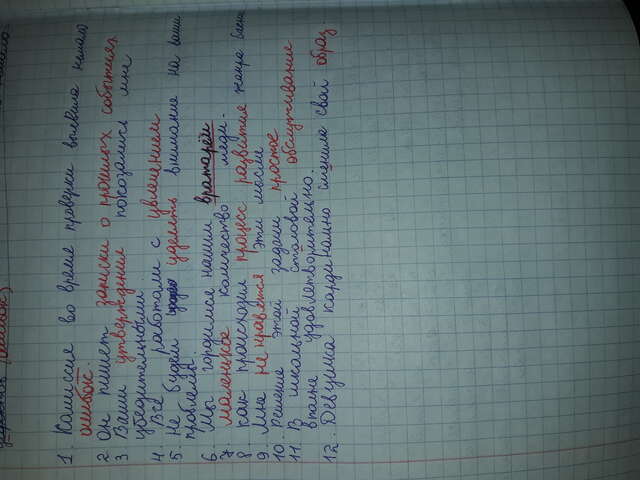 (ошибок)
1. Комиссия во время проверки выявила немало
ошибок.
2. Он пишет записки о прошлых событиях
3. Ваши утверждения показались мне
убедительными.
4. Все работали с увлечением
5. Не будем уделять внимание на ваши
проблемы.
6. Мы гордимся нашим вратарём
7. маленькое количество меди.
8. как происходил процесс развития жанра басни
9. Мне не нравятся эти мысли
10. Решение этой задачи простое
11. В школьной столовой обслуживание
вполне удовлетворительно.
12. Девушка кардинально сменила свой образ